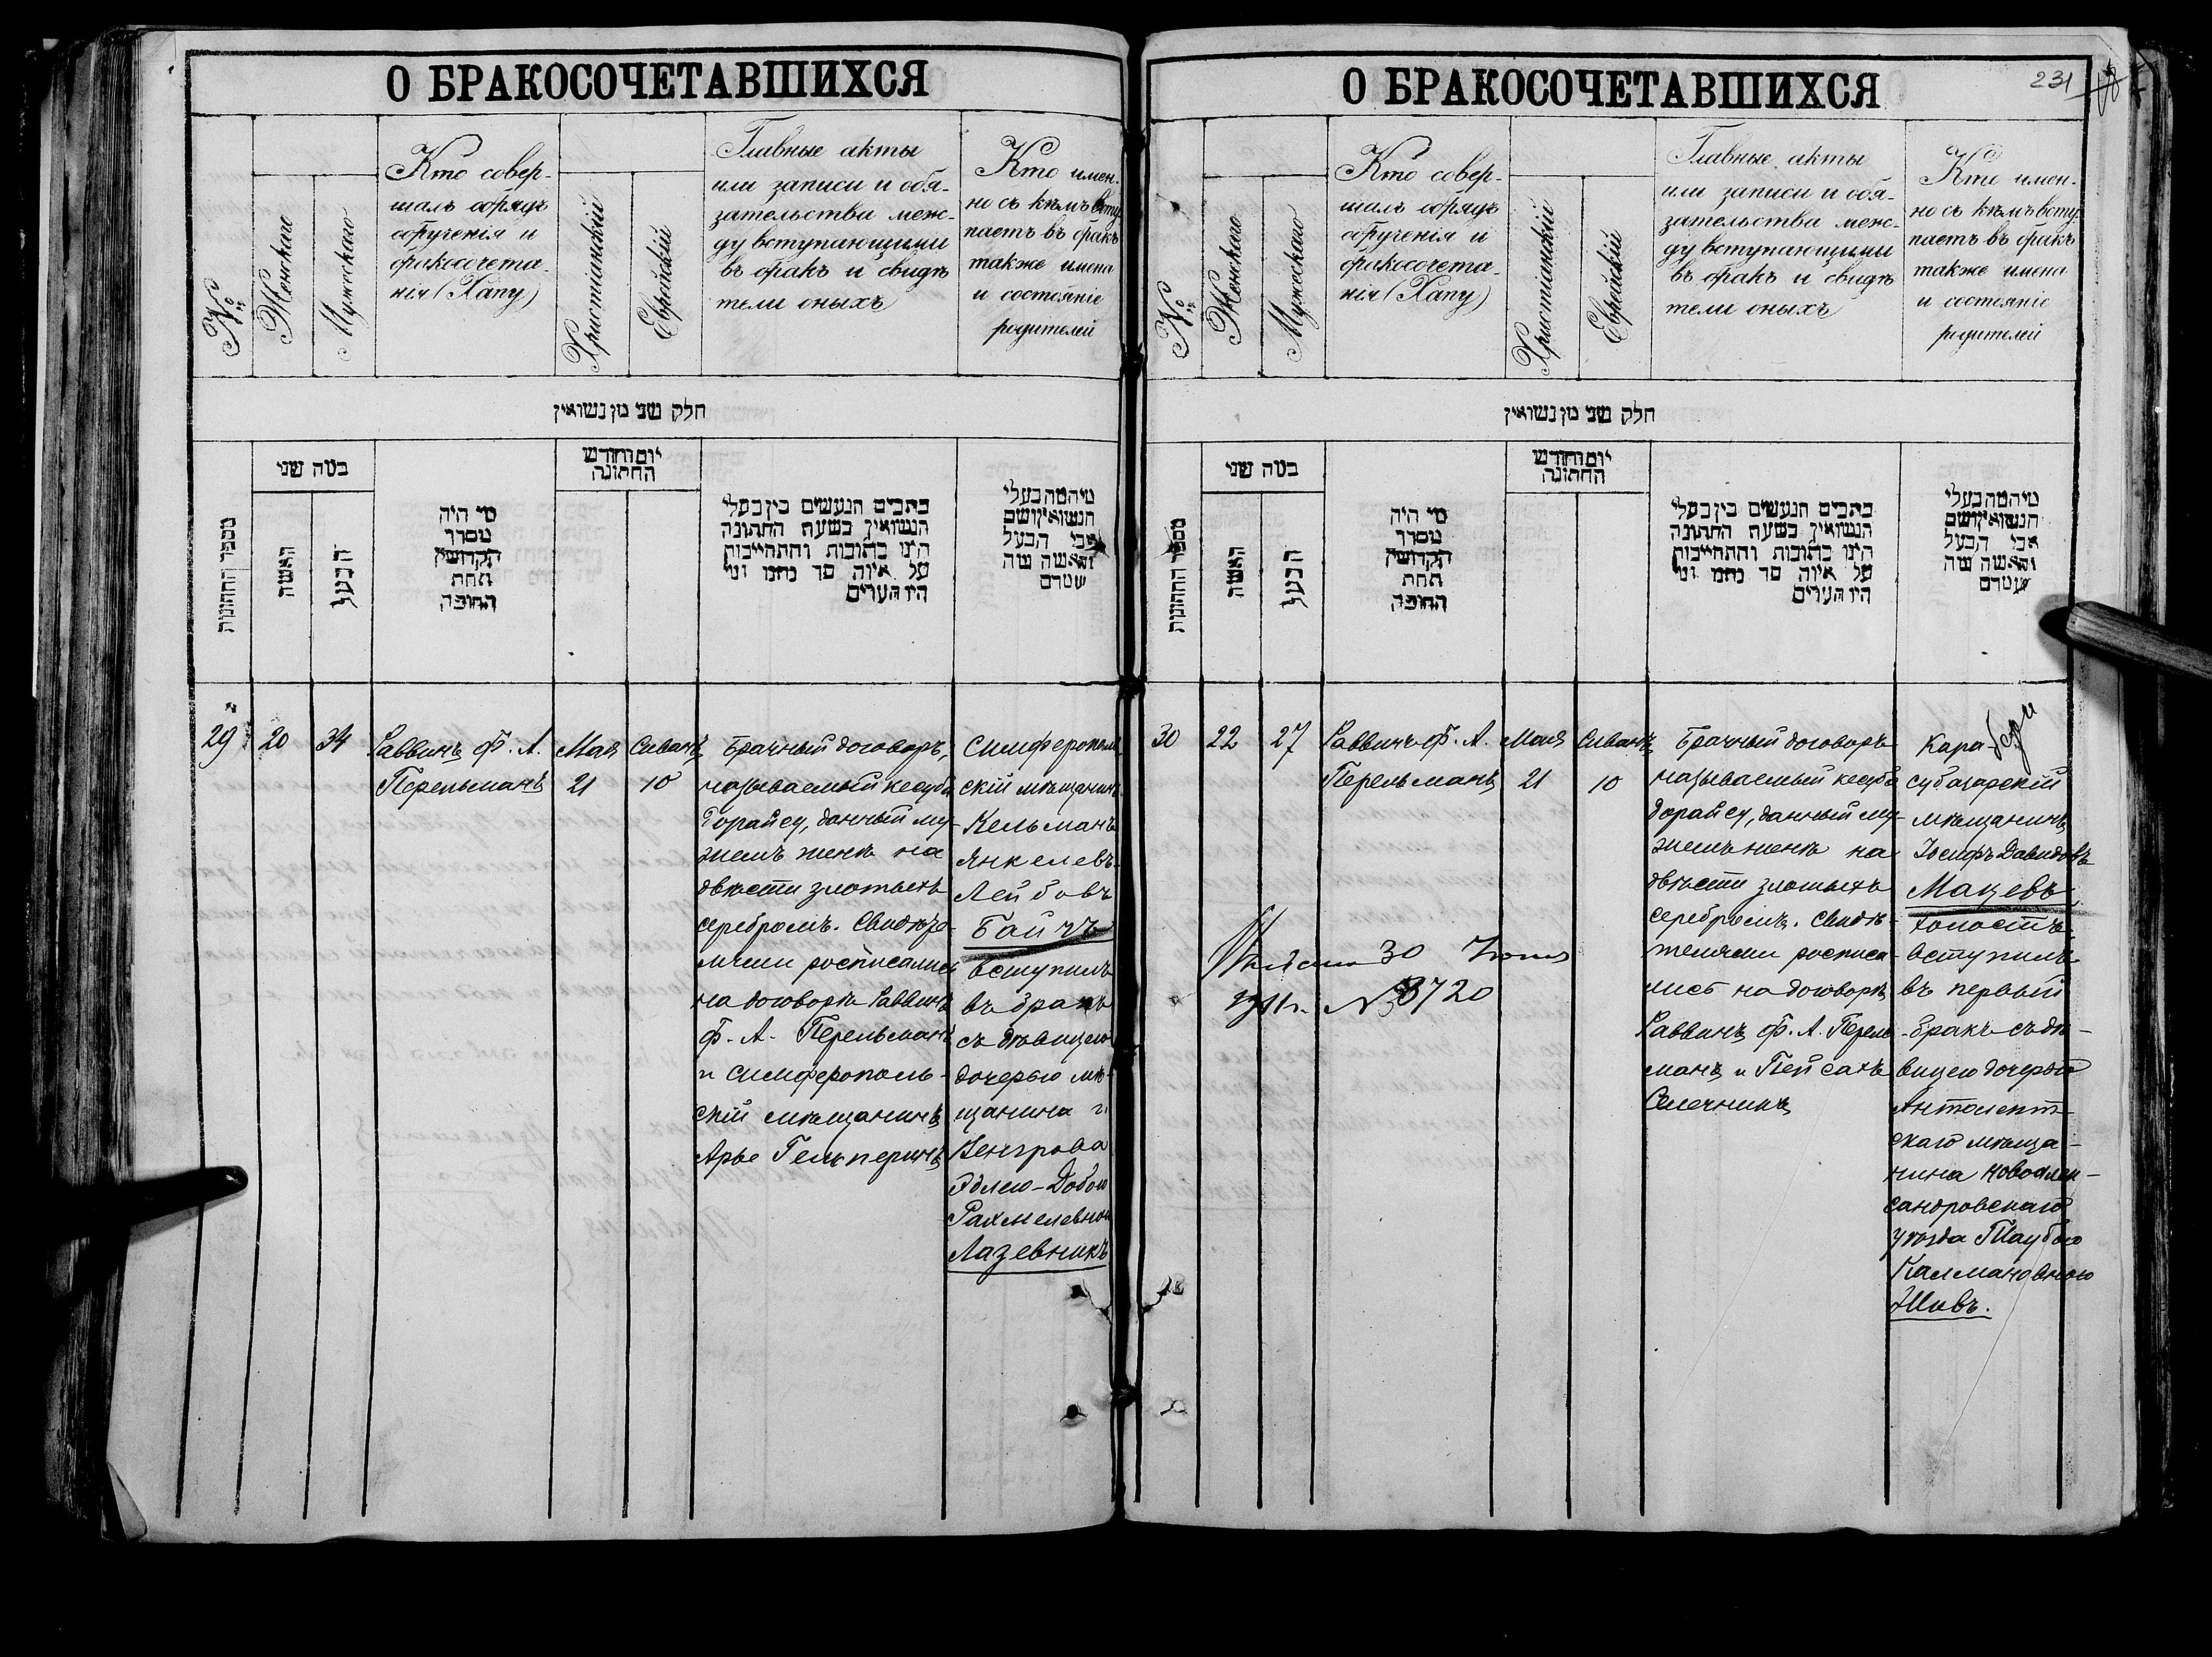 О БРАКОСОЧЕТАВШИХСЯ
№
Женскаго
Мужескаго
Кто совер-
шалъ обрядъ
обрученія и
бракосочета-
нія (Хапу)
Христіанскій
Еврейскій
Главные акты
или записи и обя-
зательства меж-
ду вступающими
въ бракъ и свидѣ
тели оныхъ
Кто имен-
но съ кѣмъ всту
паетъ въ бракъ
также имена
и состояніе
родителей
חלק שני מן נשואין
מספר החתונות
כמה שני
האשה
הבעל
מי היה
מסדר
הקדושין
תחת
החופה
יום וחודש
החתונה
כתבים הנעשים בין בעלי
הנשואין בשעת החתונה
היינו כתובות והתחייבות
על איזה סך נתנו ומי
היו העדים
מי המה בעלי
הנשואין ושם
אבי הבעל
והאשה מה
שמם
29
20
34
Раввинъ Ф. А.
Перельманъ
Мая
21
Сиванъ
10
Брачный договоръ,
называемый кесуба
Дорайсу, данный му-
жемъ женѣ на
двѣсти злотыхъ
серебромъ. Свидѣте-
лями росписались
на договорѣ Раввинъ
Ф. А. Перельманъ
и Симферополь-
скій мѣщанинъ
Арье Гельперинъ
Симферополь
скій мѣщанинъ
Кельманъ
Янкелевъ-
Лейбовъ
Байчъ
вступилъ
въ бракъ
съ дѣвицею
дочерью мѣ-
щанина г.
Венгрова
Эдлею-Добою
Рахмелевною
Лазевникъ
О БРАКОСОЧЕТАВШИХСЯ
231
№
Женскаго
Мужескаго
Кто совер-
шалъ обрядъ
обрученія и
бракосочета-
нія (Хапу)
Христіанскій
Еврейскій
Главные акты
или записи и обя-
зательства меж-
ду вступающими
въ бракъ и свидѣ
тели оныхъ
Кто имен-
но съ кѣмъ всту
паетъ въ бракъ
также имена
и состояніе
родителей
חלק שני מן נשואין
מספר החתונות
כמה שני
האשה
הבעל
מי היה
מסדר
הקדושין
תחת
החופה
יום וחודש
החתונה
כתבים הנעשים בין בעלי
הנשואין בשעת החתונה
היינו כתובות והתחייבות
על איזה סך נתנו ומי
היו העדים
מי המה בעלי
הנשואין ושם
אבי הבעל
והאשה מה
שמם
30
22
27
Раввинъ Ф. А.
Перельманъ
30 Іюня
№ 3720
Мая
21
Сиванъ
10
Брачный договоръ
называемый кесуба
дорайсу, данный му-
жемъ женѣ на
двѣсти злотыхъ
серебромъ. Свидѣ-
телями росписа-
лись на договорѣ
Раввинъ Ф. А. Перель
манъ и Пейсахъ
Кара-
субазарскій
мѣщанинъ
Іосифъ Давидовъ
Мацевъ
холостъ
вступилъ
въ первый
бракъ съ дѣ-
вицею дочерью
Антолепт-
скаго мѣща-
нина Новоалек-
сандровскаго
уѣзда Таубою
Калмановною
Шивъ.